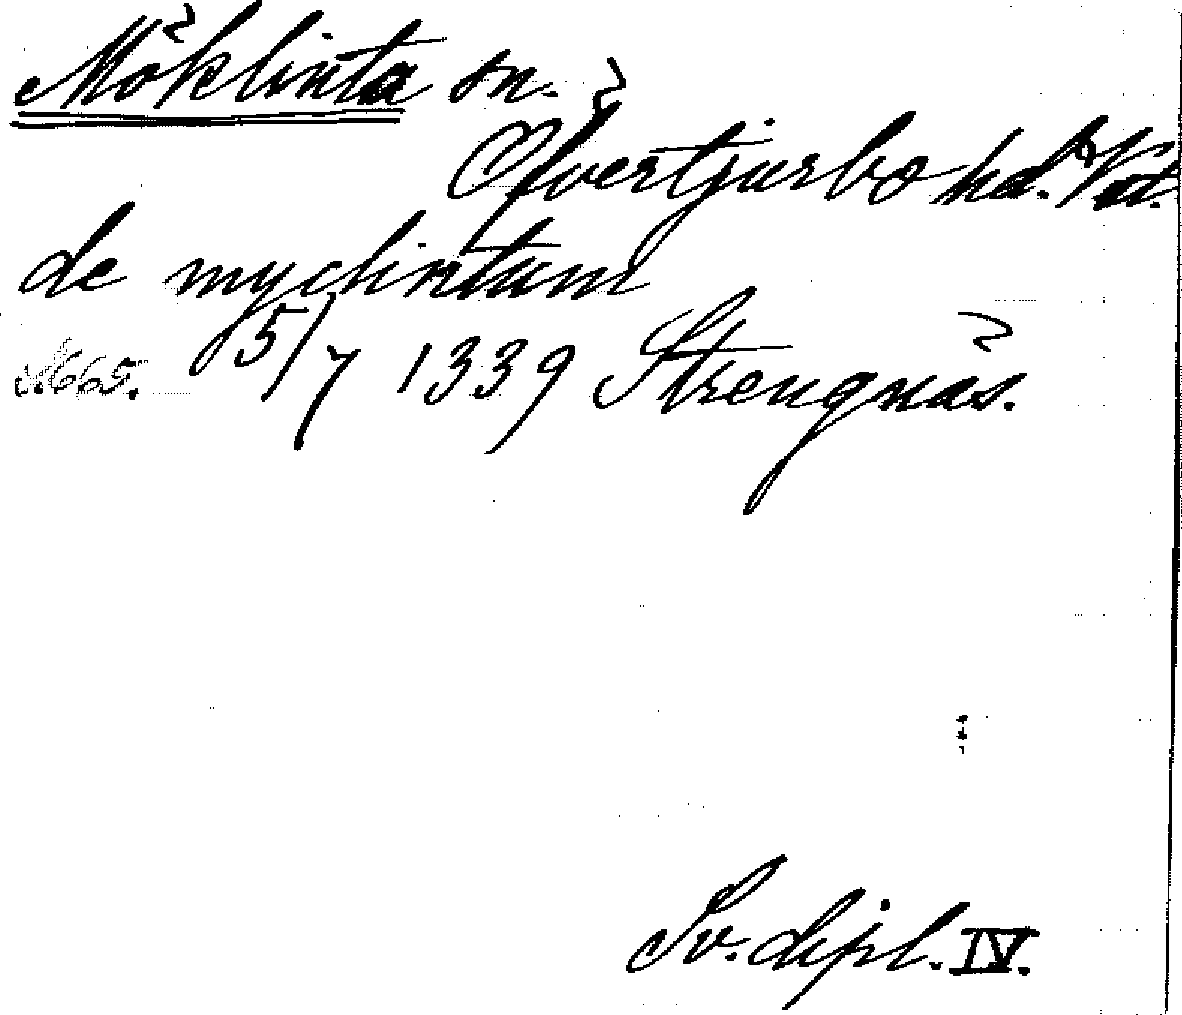 Möklinta sn.
Öfvertjurbo hd. Vst.
de myclintum
s. 665. 15/7 1339 Strengnäs.
Sv. dipl. IV.